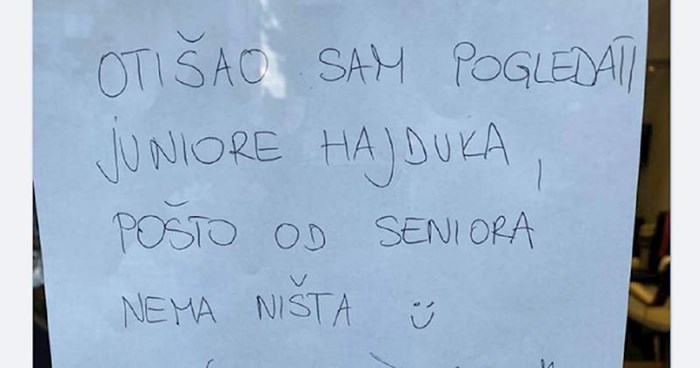 OTIŠAO SAM POGLEDATI
JUNIORE HAJDUKA,
POŠTO OD SENIORA
NEMA NIŠTA ☺